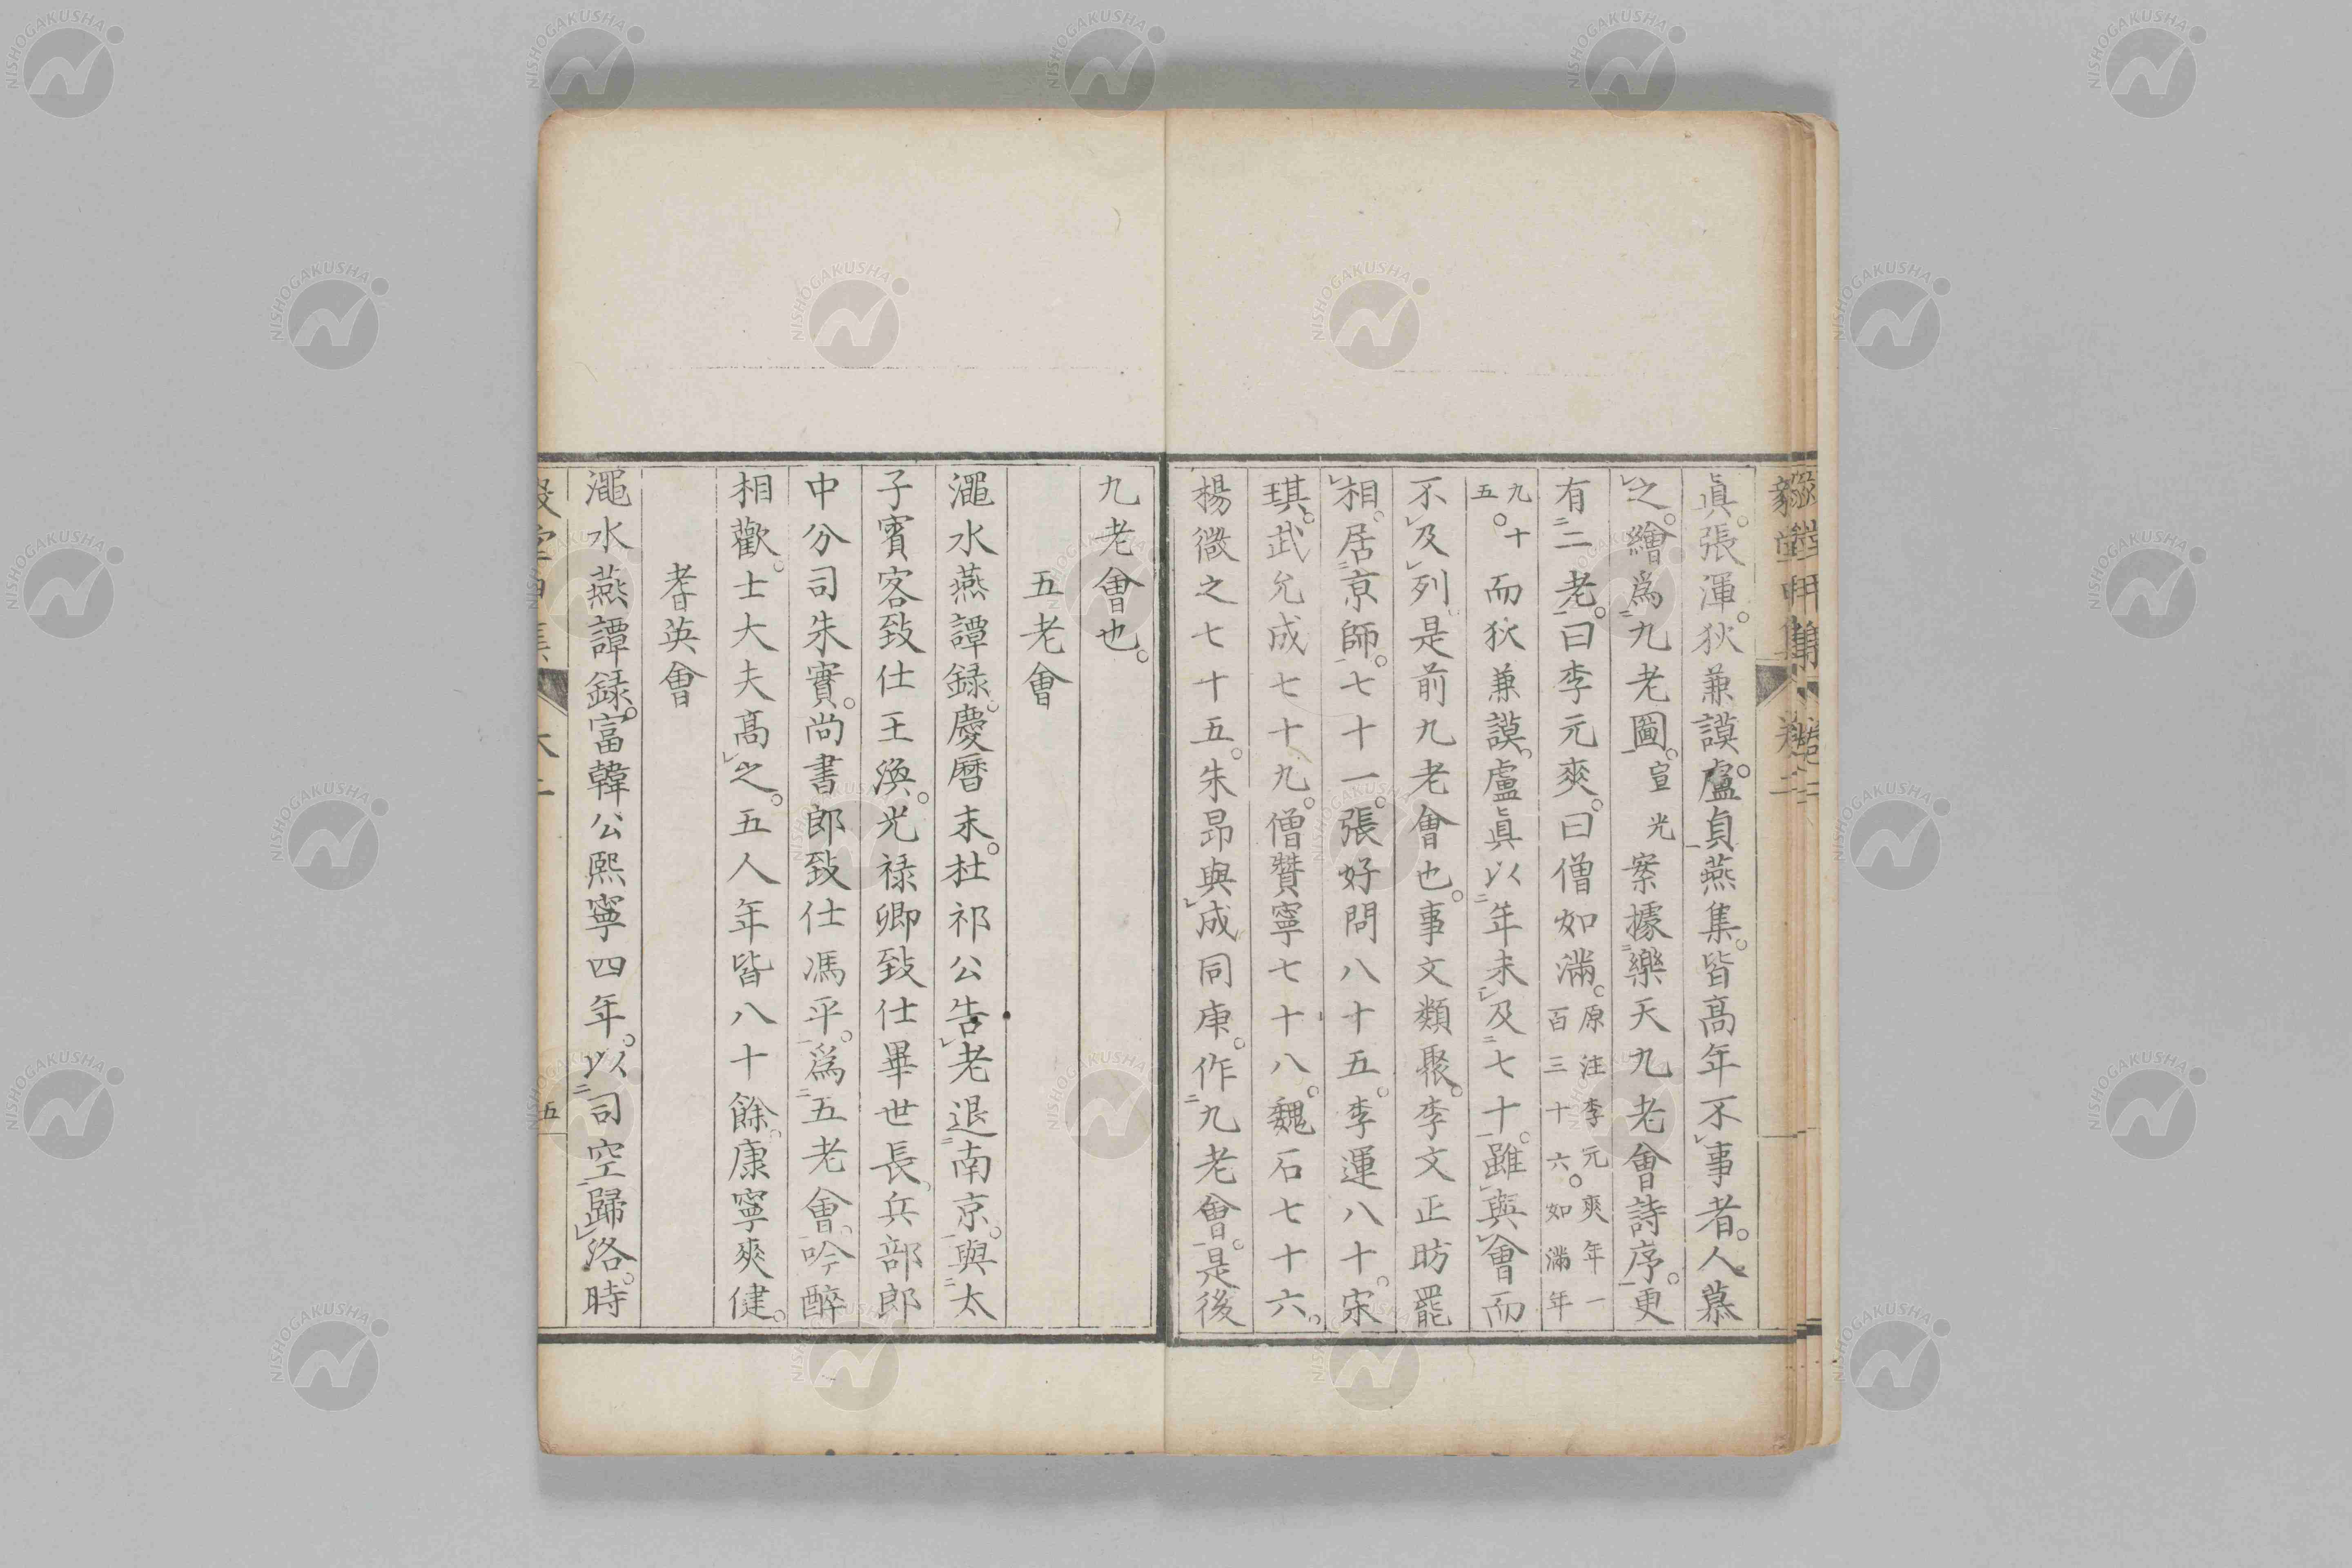 眞。張渾。狄兼謨。盧貞燕集。皆高年不事者。人慕
之。繪爲九老圖。宣光案據樂天九老會詩序。更
有二老。曰李元爽。曰僧如滿。原注李元爽年一百三十六。如滿年
九十五。而狄兼謨。盧眞以年未及七十。雖與會而
不及列。是前九老會也。事文類聚。李文正昉罷
相。居京師。七十一。張好問八十五。李運八十。宋
琪。武允成七十九。僧贊寧七十八。魏石七十六。
楊徽之七十五。朱昂與成同庚。作九老會。是後
九老會也。
五老會
澠水燕譚録。慶曆末。杜祁公告老退南京。與太
子賓客致仕王渙。光祿卿致仕畢世長。兵部郎
中分司朱實。尚書郎致仕馮平。爲五老會。吟醉
相歡。士大夫高之。五人年皆八十餘。康寧爽健。
耆英會
澠水燕譚録。富韓公熙寧四年。以司空歸洛。時
五
NISHOGAKUSHA